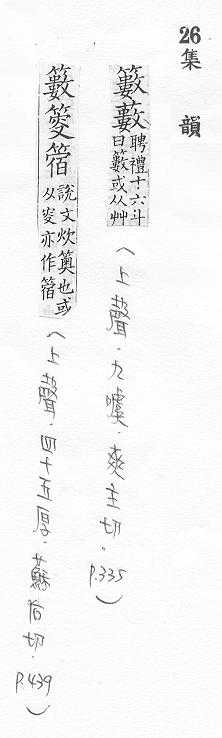 26
集韻
籔藪
聘禮十六斗
曰籔或从艸
(上聲.九噳.爽主切。P.335)
籔
說文炊䉛也或
从叜亦作
(上聲.四十五厚.蘇后切.P.439)